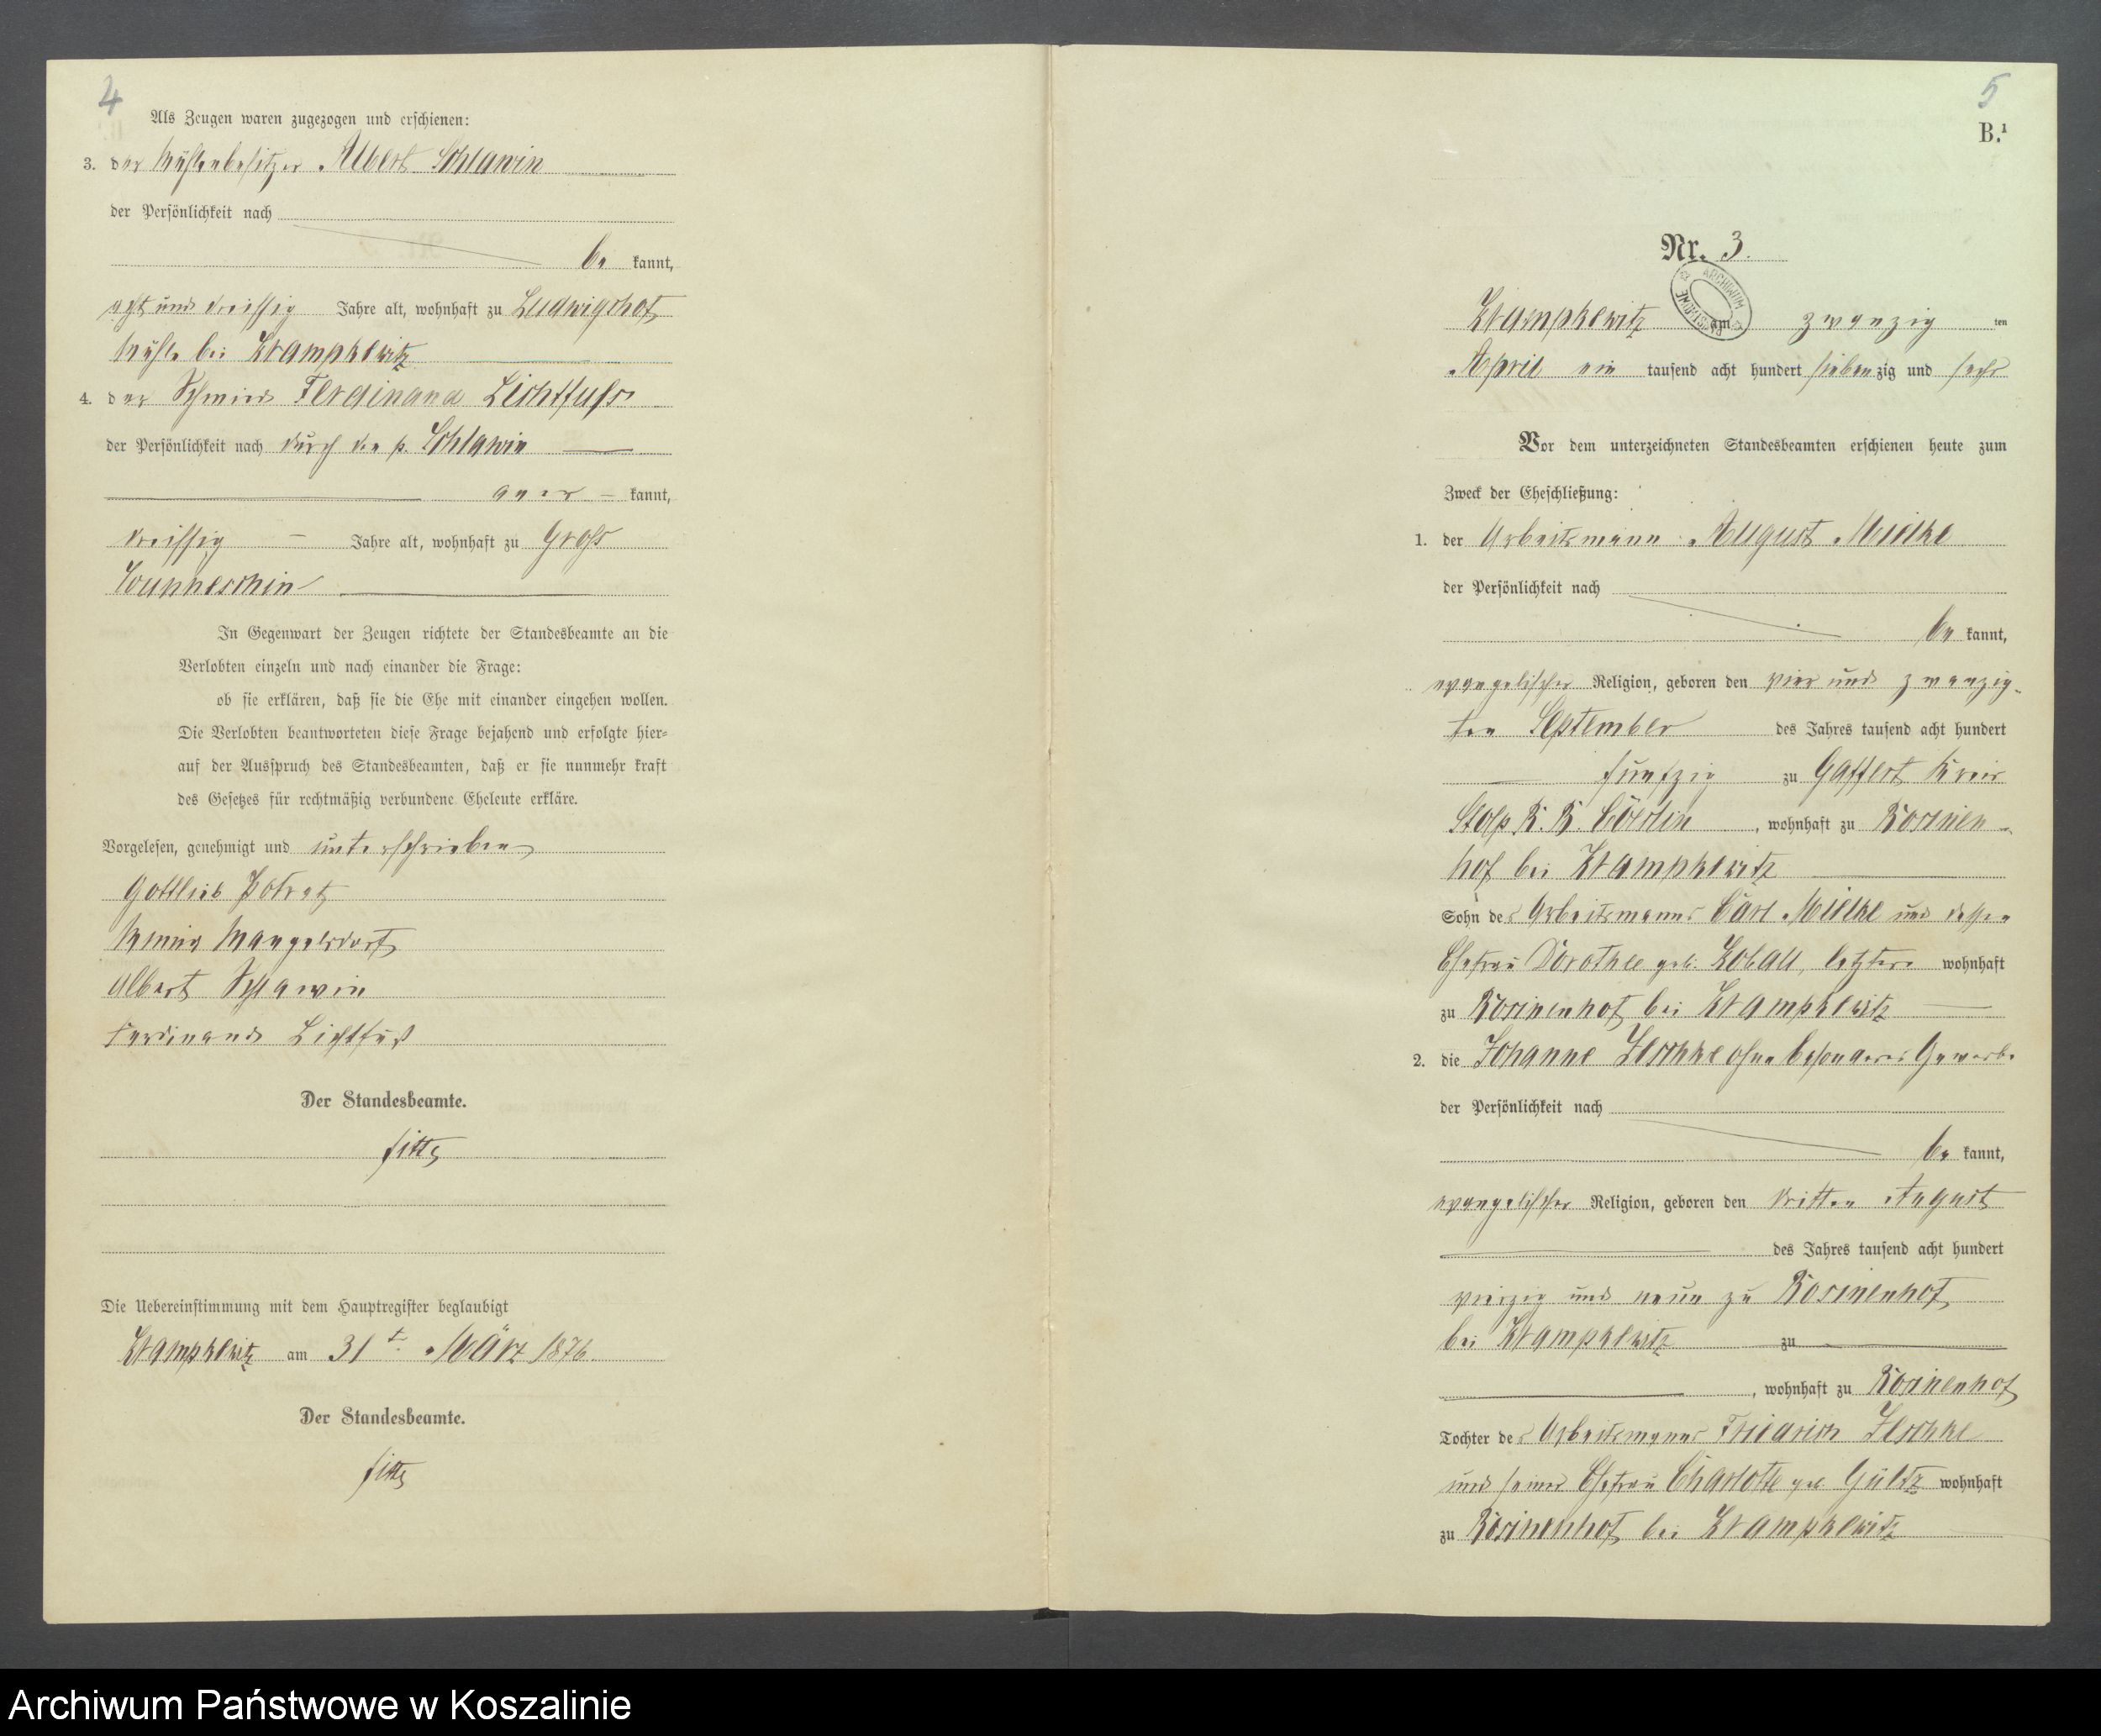 4
Als Zeugen waren zugezogen und erschienen:
3. der Mühlenbesitzer Albert Schlawin
der Persönlichkeit nach
be kannt,
acht und dreissig Jahre alt, wohnhaft zu Ludwigshof
Mühle bei Krampkewitz
4. der Schmied Ferdinand Lichtfuss
der Persönlichkeit nach durch den p. Schlawin
aner kannt,
dreissig Jahre alt, wohnhaft zu Gross
Wunneschin
In Gegenwart der Zeugen richtete der Standesbeamte an die
Verlobten einzeln und nach einander die Frage:
ob sie erklären, daß sie die Ehe mit einander eingehen wollen.
Die Verlobten beantworteten diese Frage bejahend und erfolgte hier-
auf der Ausspruch des Standesbeamten, daß er sie nunmehr kraft
des Gesetzes für rechtmäßig verbundene Eheleute erkläre.
Vorgelesen, genehmigt und unterschrieben
Gottlieb Potratz
Mangelsdorf
Albert Schlawin
Ferdinand Lichtfuß
Der Standesbeamte.
Die Uebereinstimmung mit dem Hauptregister beglaubigt
Krampkewitz am 31t. März 1876.
Der Standesbeamte.
5
B.¹
Nr. 3.
ARCHIWUM
Krampkewitz am zwanzig ten
April ein tausend acht hundert siebenzig und sechs
Vor dem unterzeichneten Standesbeamten erschienen heute zum
Zweck der Eheschließung:
1. der Arbeitsmann August Mielke
der Persönlichkeit nach
be kannt,
evangelischer Religion, geboren den vier und zwanzig-
ten September des Jahres tausend acht hundert
funfzig zu Gaffert Kreis
Stolp R. B. Cöslin, wohnhaft zu Rosinen-
hof bei Krampkewitz
Sohn des Arbeitsmanns Carl Mielke und dessen
Ehefrau Dorothee geb. Koball, letztere wohnhaft
zu Rosinenhof bei Krampkewitz
2. die Johanne Jeschke ohne besonderes Gewerbe
der Persönlichkeit nach
be kannt,
evangelischer Religion, geboren den dritten August
des Jahres tausend acht hundert
vierzig und neun zu Rosinenhof
bei Krampkewitz zu
, wohnhaft zu Rosinenhof
Tochter des Arbeitsmanns Friedrich Jeschke
und seiner Ehefrau Charlotte geb. Gültz wohnhaft
zu Rosinenhof bei Krampkewitz
Archiwum Państwowe w Koszalinie